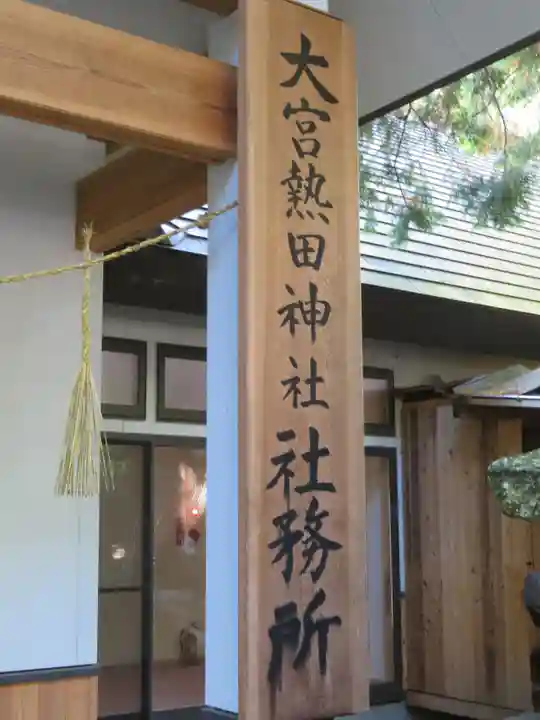 大宮熱田神社社務所